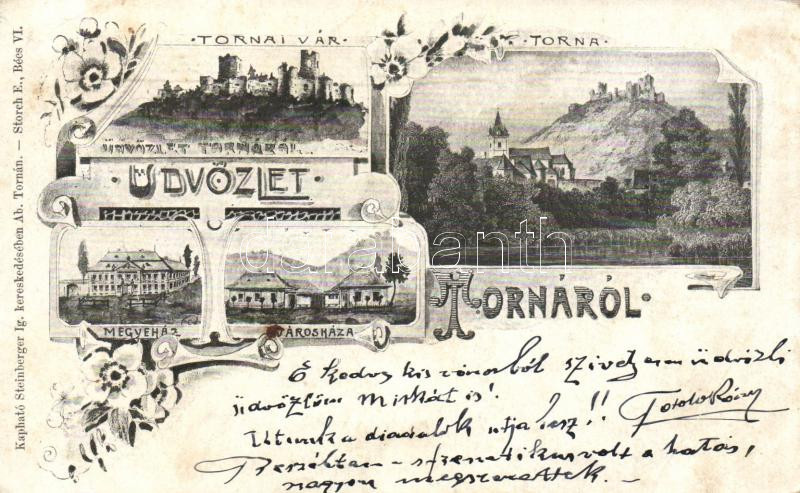 Kapható Steinberger Ig. kereskedésében Ab. Tornán. — Storch E., Bécs VI.
· TORNAI VÁR ·
· TORNA ·
ÜDVÖZLET TORNÁRÓL
ÜDVÖZLET
TORNÁRÓL.
MEGYEHÁZ
VÁROSHÁZA
darabanth
E kedves kis városból szívélyesen üdvözli
üdvözlöm Miskát is!
Utunk a diadalok útja lesz!!
Beszéltem – volt a hatás,
nagyon megszerettek. –